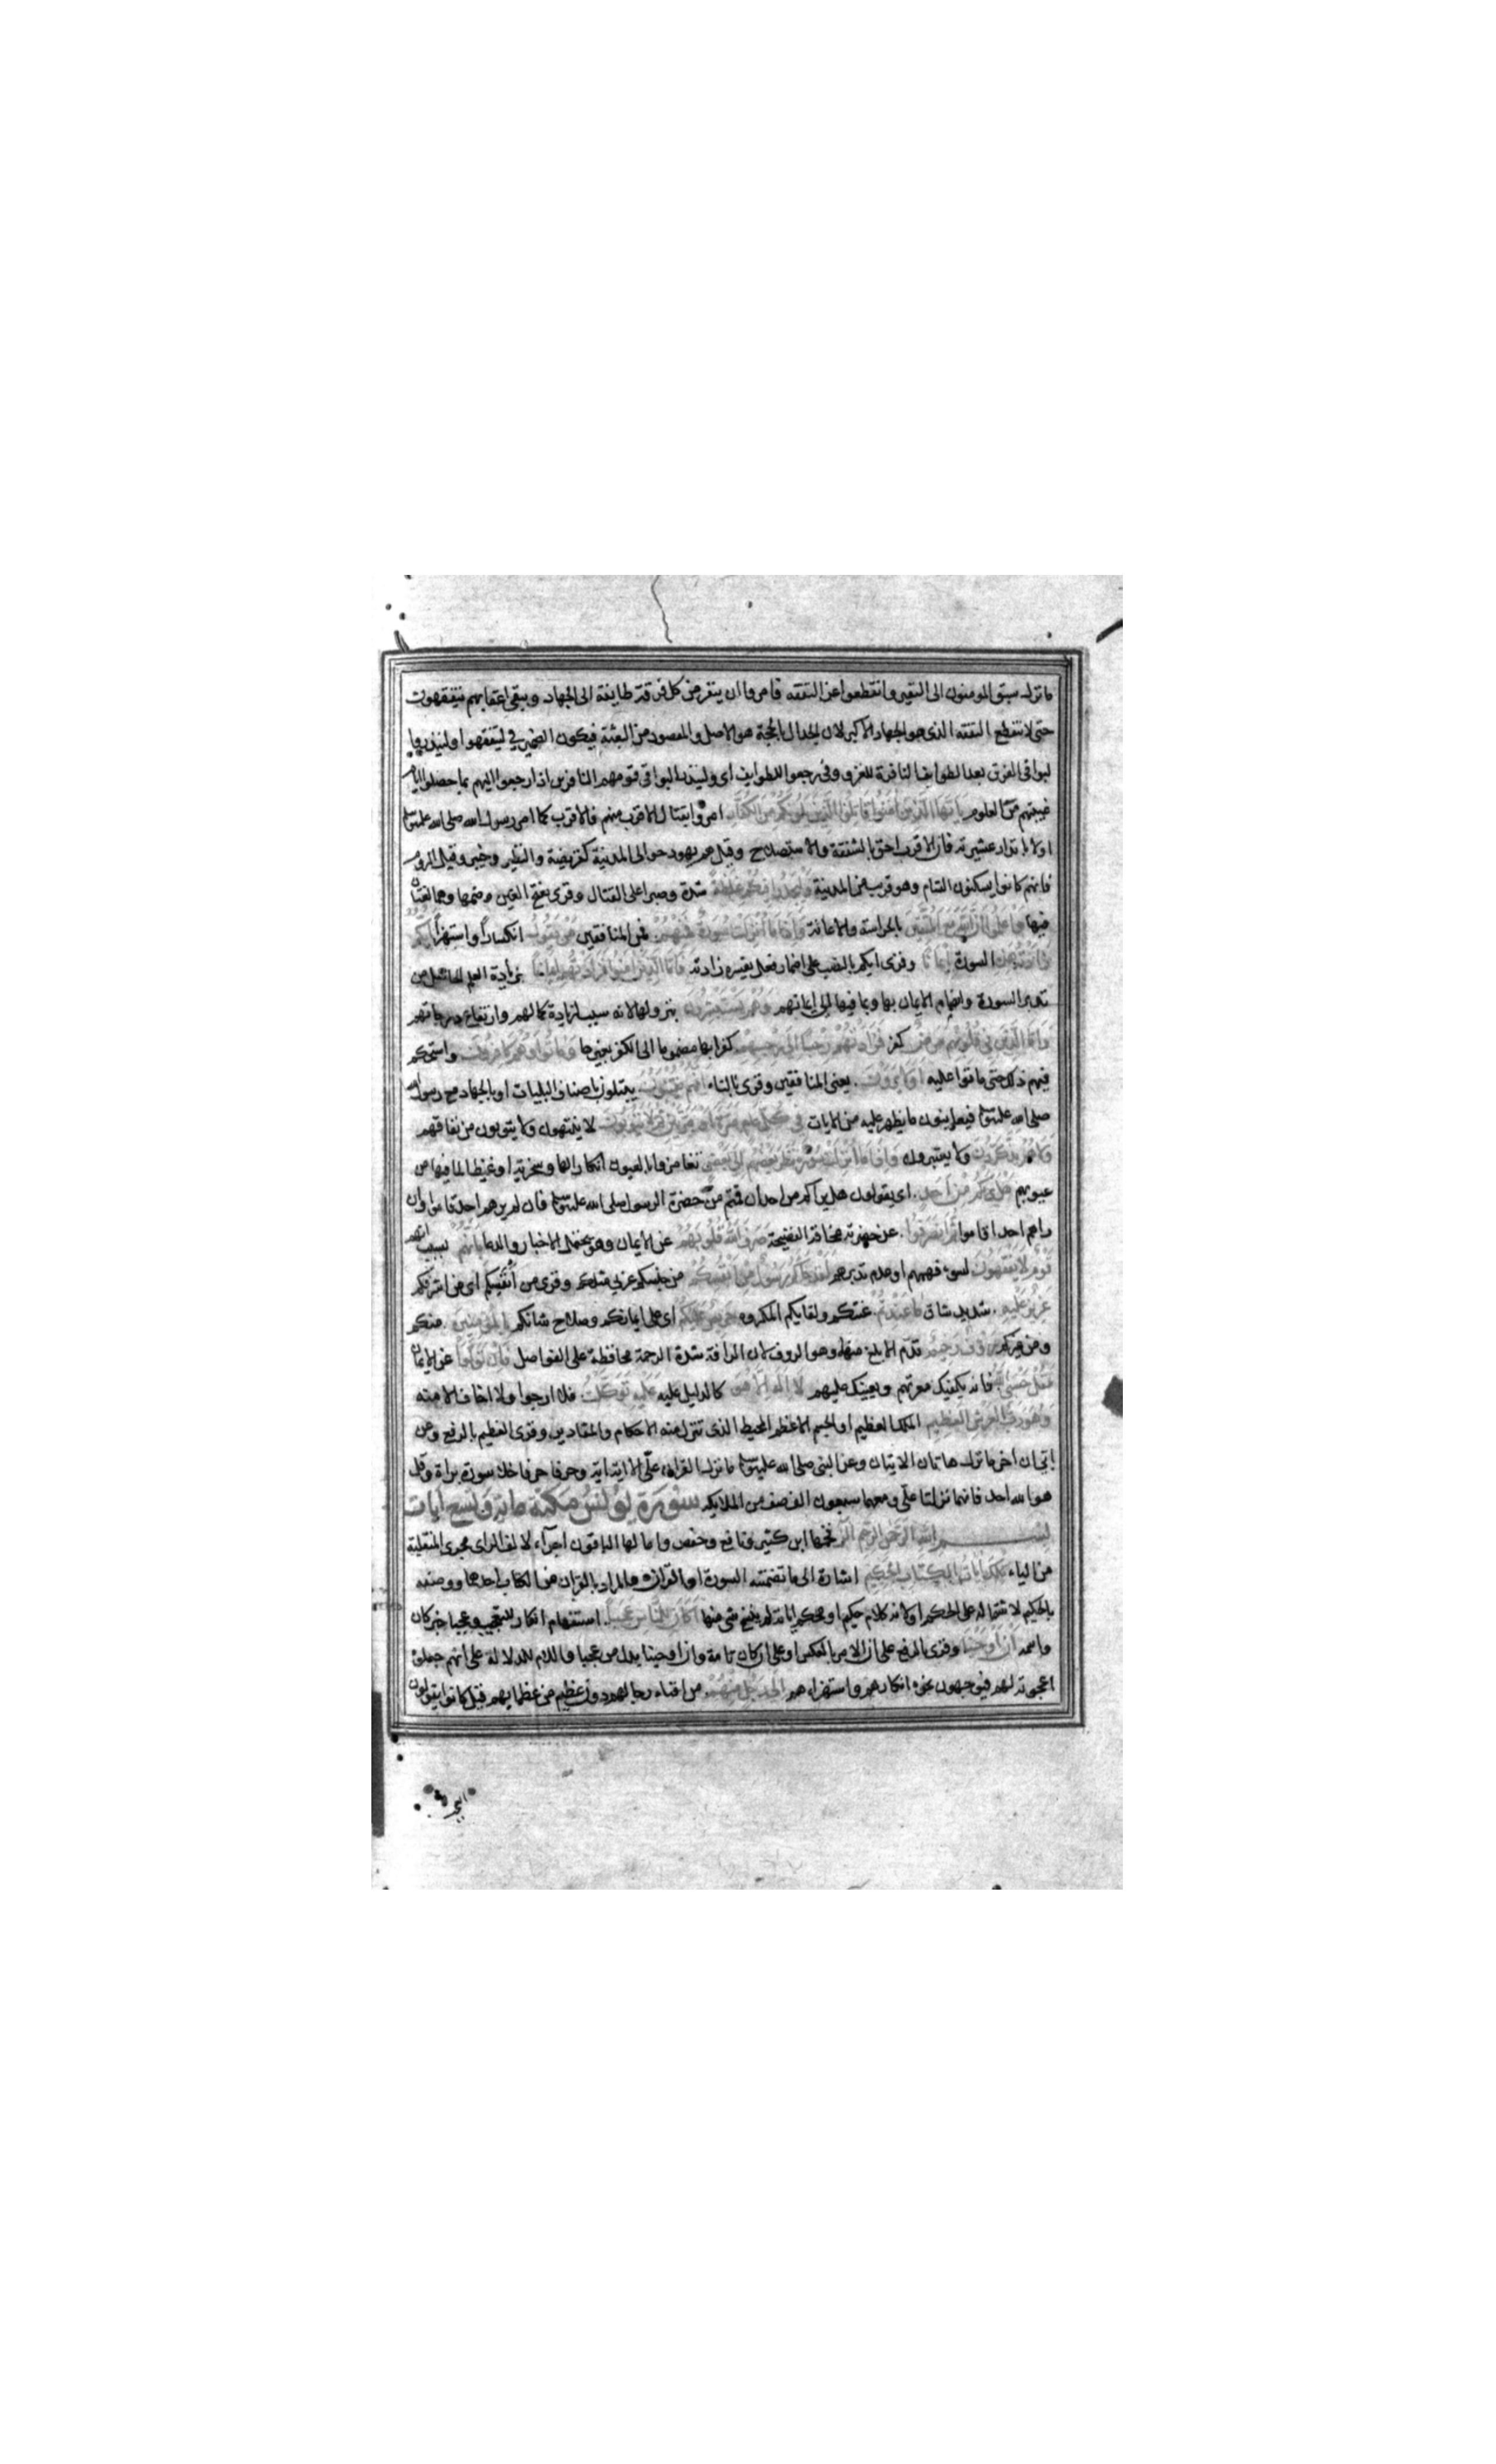 ما نزل سبق المومنون الى النفير وانقطعوا عن التفقه فامروا ان ينفر من كل فرقة طايفة الى الجهاد ويبقى اعقابهم يتفقهون
حتى لا ينقطع التفقه الذى هو الجهاد الاكبر لان الجدال بالحجة هو الاصل والمقصود من البعثة فيكون الضمير في ليتفقهوا ولينذروا
لبواقى الفرق بعد الطوايف النافرة للغزو وفى رجعوا للطوايف اى ولينذر البواقى قومهم النافرين اذا رجعوا اليهم بما حصلوا ايام
غيبتهم من العلوم يا ايها الذين امنوا قاتلوا الذين يلونكم من الكفار امروا بقتال الاقرب منهم فالاقرب كما امر رسول الله صلى الله عليه
اولا بانذار عشيرته فان الاقرب احق بالشفقة والاستصلاح وقيل هم يهود حوالى المدينة كقريضة والنظير وخيبر وقيل الروم
فانهم كانوا يسكنون الشام وهو قريب من المدينة وليجدوا فيكم غلظة شدة وصبرا على القتال وقرى بفتح الغين وضمها وهما لغتان
فيها واعلموا ان الله مع المتقين بالحراسة والاعانة واذا ما انزلت سورة فمنهم فمن المنافقين من يقول انكارا واستهزأ ايكم
زادته هذه السورة ايمانا وقرى ايكم بالنصب على اضمار فعل يفسره زادته فاما الذين امنوا فزادتهم ايمانا بزيادة العلم الحاصل من
تدبر السورة وانضمام الايمان بها وبما فيها الى ايمانهم وهم يستبشرون بنزولها لانه سبب لزيادة كمالهم وارتفاع درجاتهم
واما الذين في قلوبهم مرض كفر فزادتهم رجسا الى رجسهم كفرا بها مضموما الى الكفر بغيرها وماتوا وهم كافرون واستحكم
فيهم ذلك حتى ماتوا عليه اولا يرون يعنى المنافقين وقرى بالتاء انهم يفتنون يبتلون باصناف البليات او بالجهاد مع رسول الله
صلى الله عليه فيعاينون ما يظهر عليه من الايات في كل عام مرة او مرتين ثم لا يتوبون لا ينتهون ولا يتوبون من نفاقهم
ولا هم يذكرون ولا يعتبرون واذا ما انزلت سورة نظر بعضهم الى بعض تغامزوا بالعيون انكارا لها وسخرية او غيظا لما فيها من
عيوبهم هل يريكم من احد اى يقولون هل يراكم من احد ان قمتم من حضرة الرسول صلى الله عليه فان لم يرهم احد قاموا وان
راهم احد اقاموا ثم انصرفوا عن حضرته مخافة الفضيحة صرف الله قلوبهم عن الايمان وهو يحتمل الاخبار والدعا بانهم بسبب انهم
قوم لا يفقهون لسوء فهمهم او عدم تدبرهم لقد جاكم رسول من انفسكم من جنسكم عربي مثلكم وقرى من أنفسكم اى من اشرفكم
عزيز عليه شديد شاق ما عنتم عنتكم ولقايكم المكروه حريص عليكم اى على ايمانكم وصلاح شانكم بالمومنين منكم
ومن غيركم رؤف رحيم قدم الابلغ منهما وهو الروف لان الرافة شدة الرحمة محافظة على الفواصل فان تولوا عن الايمان
فقل حسبي الله فانه يكفيك معرتهم ويعينك عليهم لا اله الا هو كالدليل عليه عليه توكلت فلا ارجوا ولا اخاف الا منه
وهو رب العرش العظيم الملك العظيم او الجسم الاعظم المحيط الذى تنزل منه الاحكام والمقادير وقرى العظيم بالرفع وعن
ابى ان اخر ما نزل هاتان الايتان وعن النبى صلى الله عليه ما نزل القران علّى الا اية اية وحرفا حرفا خلا سورة براة وقل
هو الله احد فانهما نزلتا علّى ومعهما سبعون الف صف من الملايكة سورة يونس مكية ماية وتسع ايات
بسم الله الرحمن الرحيم الر فخمها ابن كثير ونافع وحفص وامالها الباقون اجراء لالف الراى مجرى المنقلبة
من الياء تلك ايات الكتاب الحكيم اشارة الى ما تضمنته السورة او القران والمراد بالقران من الكتاب احدهما ووصفه
بالحكيم لاشتماله على الحكم او لانه كلام حكيم او محكم اياته لم ينسخ شى منها اكان للناس عجبا استفهام انكار للتعجب وعجبا خبر كان
واسمه ان اوحينا وقرى بالرفع على ان الامر بالعكس او على ان كان تامة وان اوحينا بدل من عجبا واللام للدلالة على انهم جعلوه
اعجوبة لهم فيوجهون نحوه انكارهم واستهزاءهم الى رجل منهم من افناء رجالهم دون عظيم من عظمايهم قيل كانوا يقولون